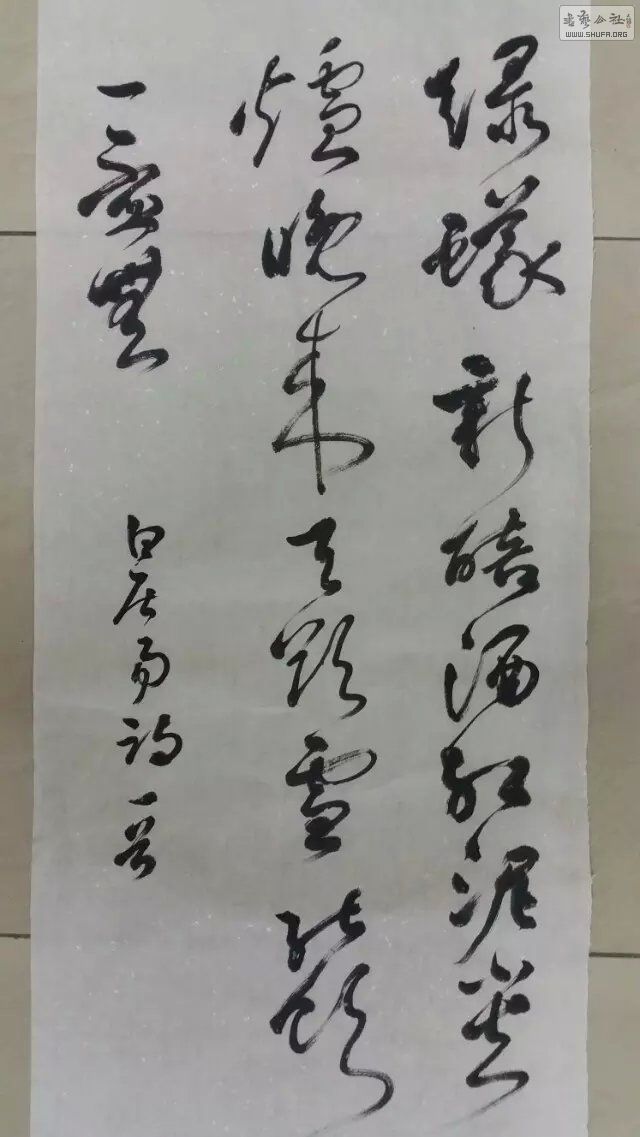 绿蟻新醅酒红泥小火
爐晚来天欲雪能飲
一盃無
白居易诗一首
書藝公社
WWW.SHUFA.ORG